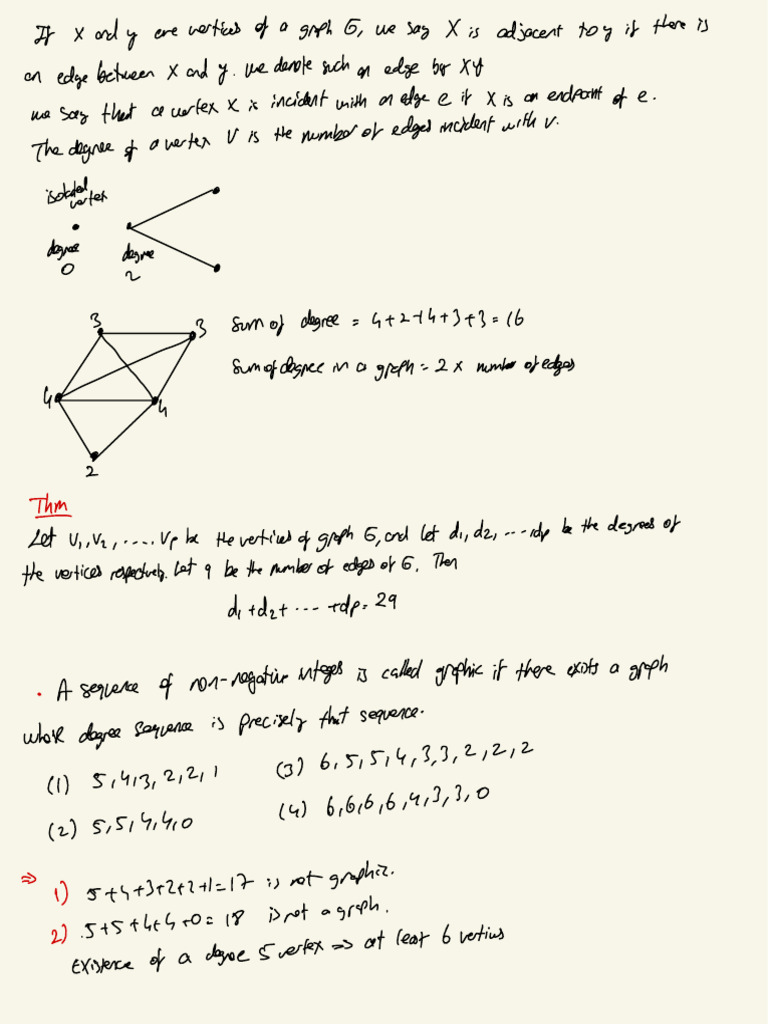 If x and y are vertices of a graph G, we say X is adjacent to y if there is
an edge between x and y. we denote such an edge by xy
we say that a vertex x is incident with an edge e if x is an endpoint of e.
The degree of a vertex V is the number of edges incident with v.
isolated
vertex
degree
0
degree
2
3
3
4
4
2
sum of degree = 4+2+4+3+3=16
sum of degree in a graph = 2 x number of edges
Thm
Let v1, v2, ....., vp be the vertices of graph G, and let d1, d2, ... dp be the degrees of
the vertices respectively. Let q be the number of edges of G. Then
d1+d2+ ... +dp= 2q
· A sequence of non-negative integes is called graphic if there exists a graph
whose degree sequence is precisely that sequence.
(1) 5,4,3,2,2,1
(2) 5,5,4,4,0
(3) 6,5,5,4,3,3,2,2,2
(4) 6,6,6,6,4,3,3,0
⇒
1) 5+4+3+2+2+1=17 is not graphic.
2) 5+5+4+4+0= 18 is not a graph.
Existence of a degree 5 vertex ⇒ at least 6 vertius